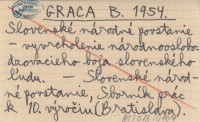 GRACA B. 1954.
Slovenské národné povstanie
- vyvrcholenie národnooslobo-
dzovacieho boja slovenského
ľudu. - Slovenské národ-
né povstanie, Sborník prác
k 10. výročiu (Bratislava).